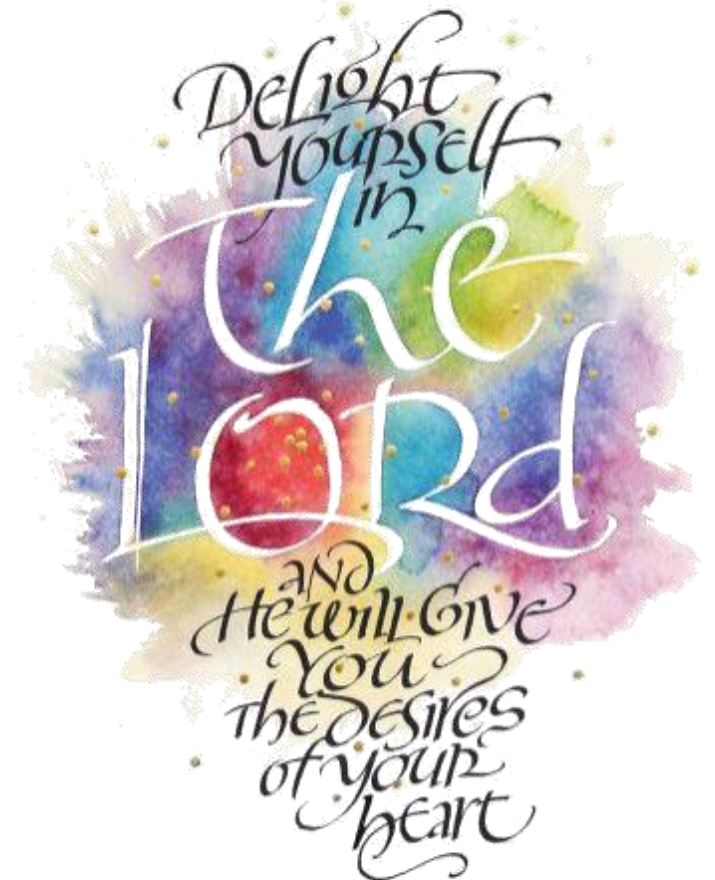 Delight
Yourself
in
The
Lord
and
He will Give
You
The desires
of your
heart